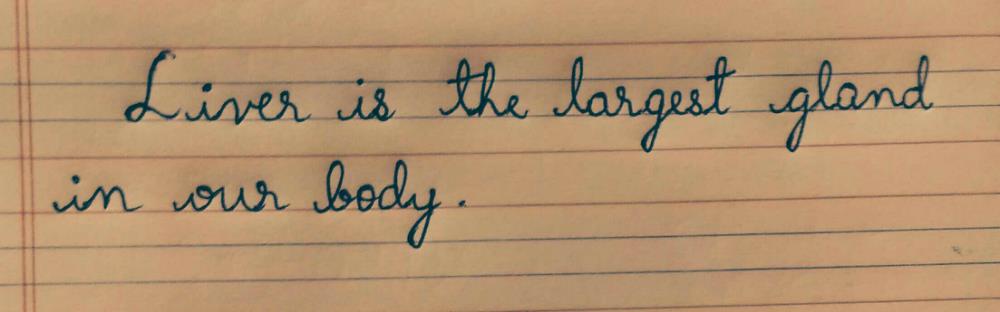 Liver is the largest gland
in our body.